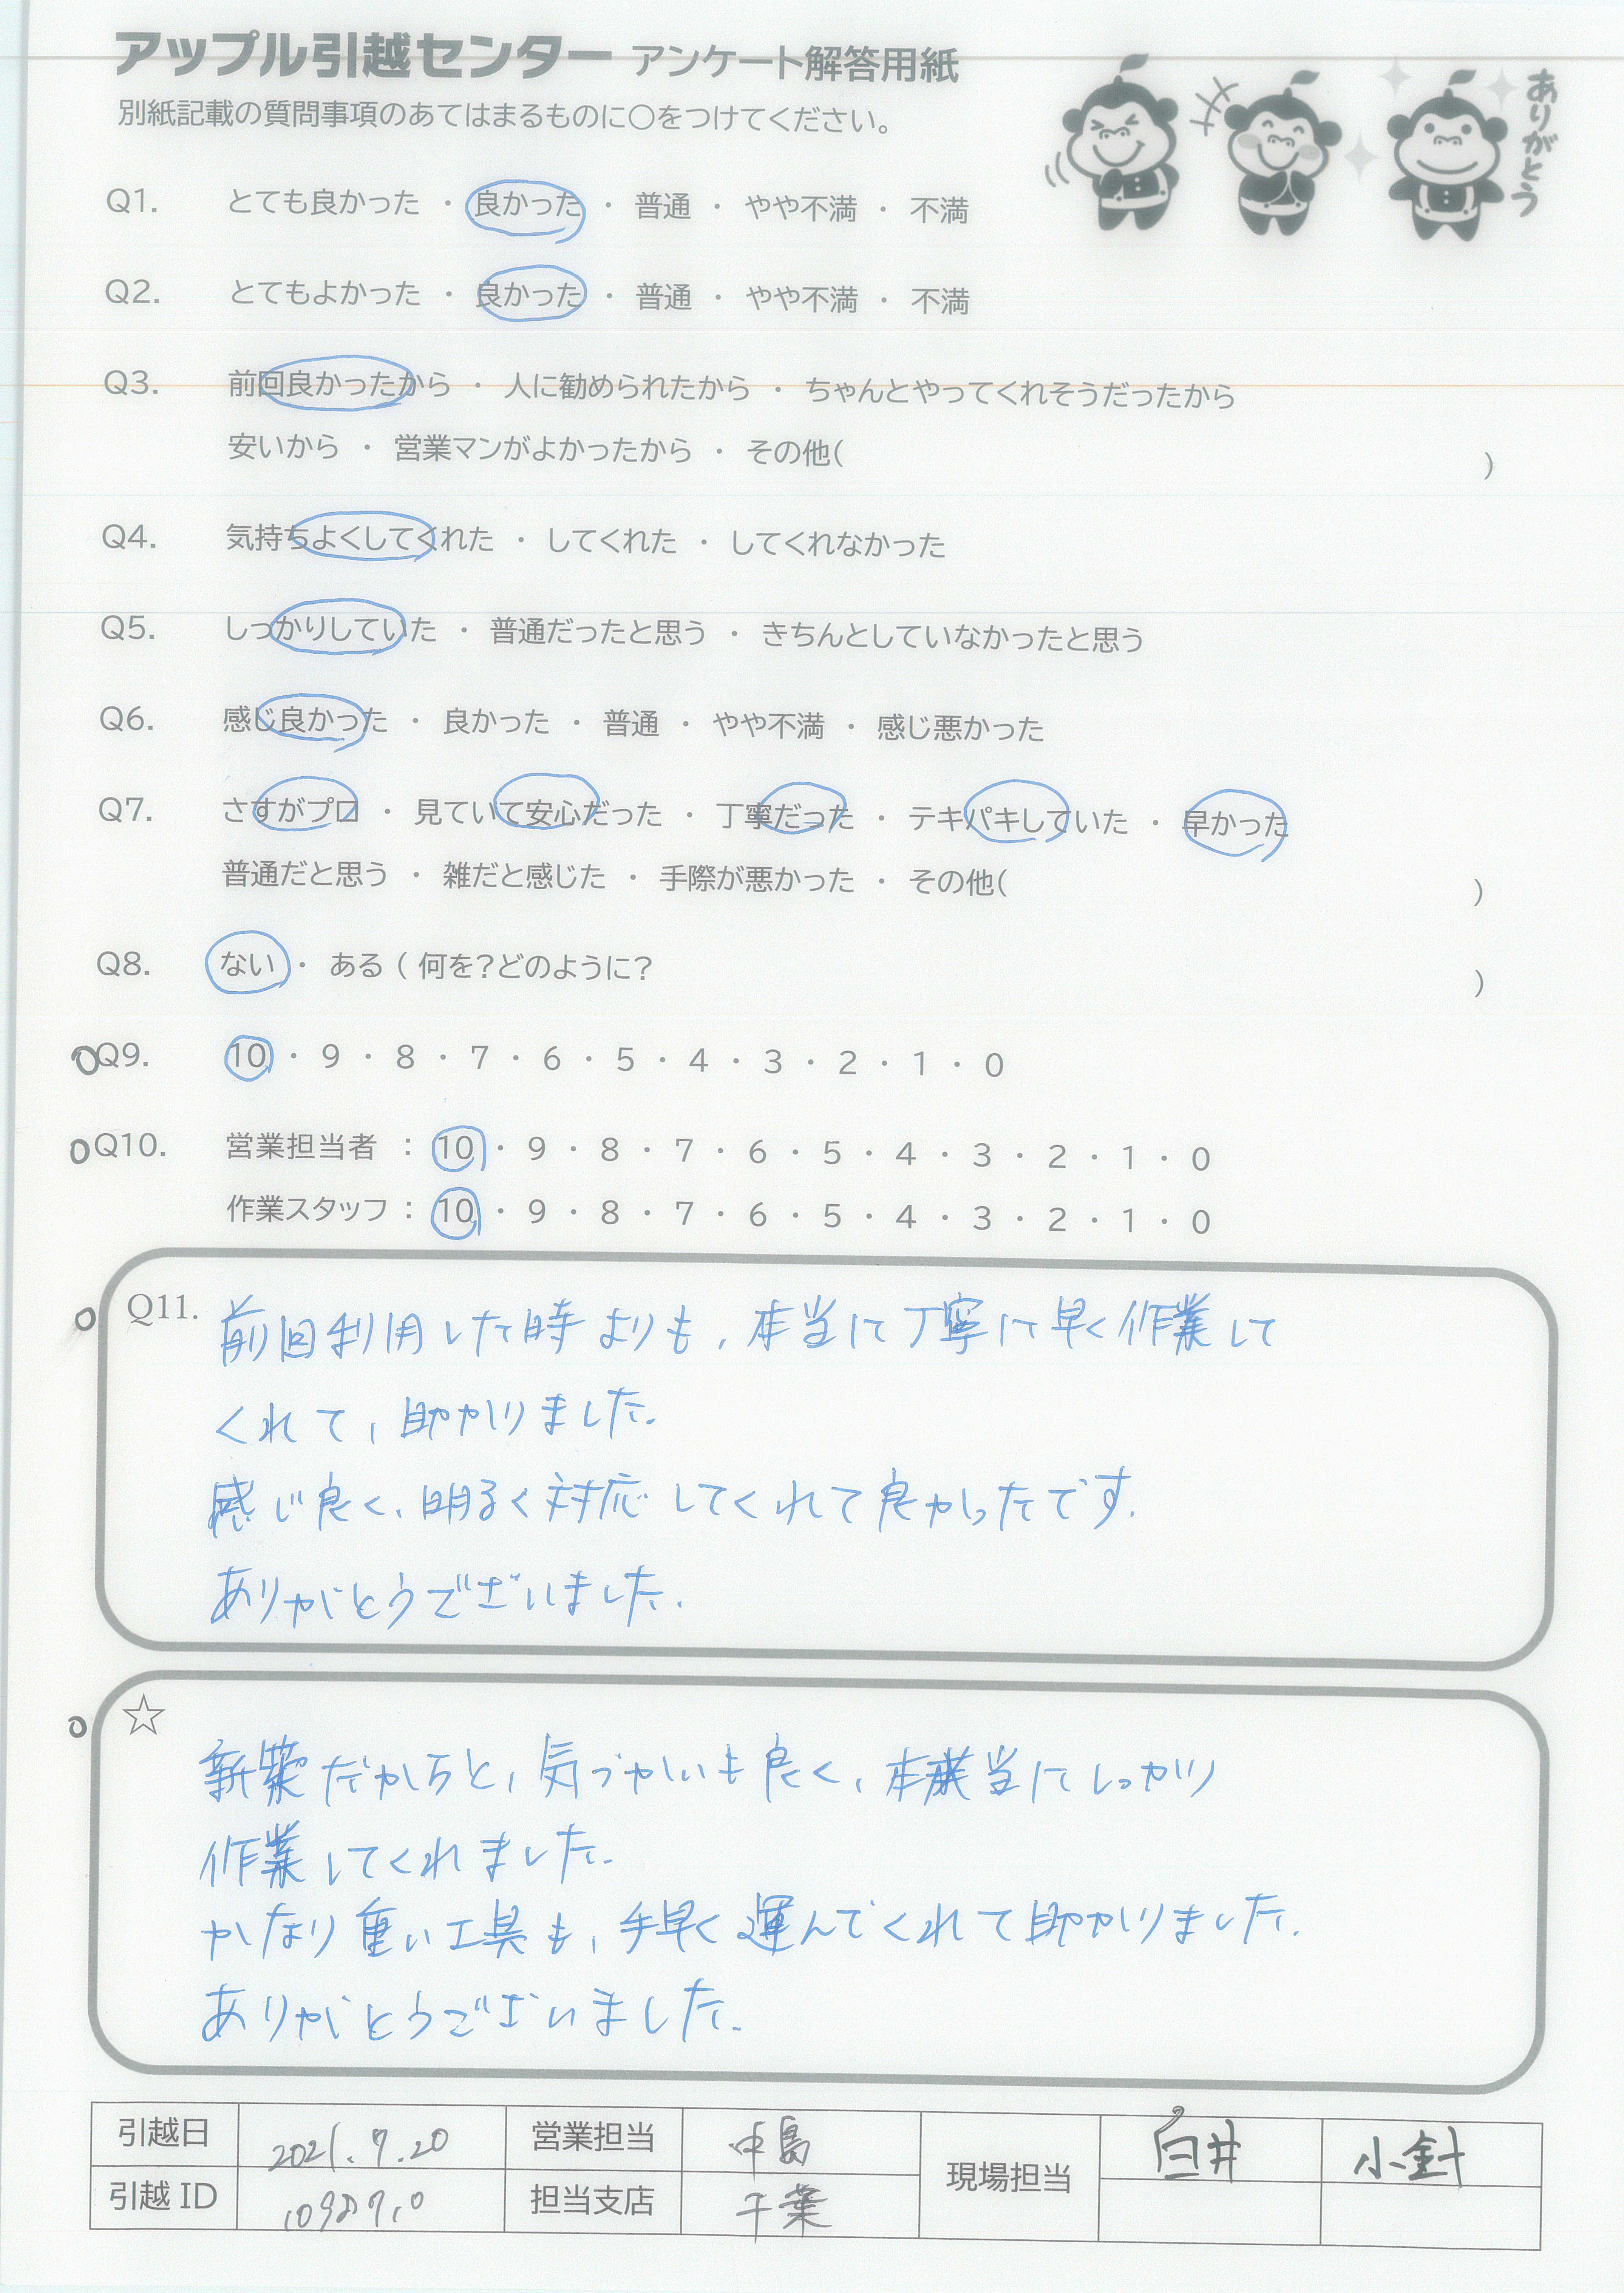 アップル引越センター アンケート解答用紙
別紙記載の質問事項のあてはまるものに○をつけてください。
ありがとう
Q1. とても良かった ・ 良かった ・ 普通 ・ やや不満 ・ 不満
Q2. とてもよかった ・ 良かった ・ 普通 ・ やや不満 ・ 不満
Q3. 前回良かったから ・ 人に勧められたから ・ ちゃんとやってくれそうだったから
安いから ・ 営業マンがよかったから ・ その他( )
Q4. 気持ちよくしてくれた ・ してくれた ・ してくれなかった
Q5. しっかりしていた ・ 普通だったと思う ・ きちんとしていなかったと思う
Q6. 感じ良かった ・ 良かった ・ 普通 ・ やや不満 ・ 感じ悪かった
Q7. さすがプロ ・ 見ていて安心だった ・ 丁寧だった ・ テキパキしていた ・ 早かった
普通だと思う ・ 雑だと感じた ・ 手際が悪かった ・ その他( )
Q8. ない ・ ある ( 何を?どのように? )
Q9. 10 ・ 9 ・ 8 ・ 7 ・ 6 ・ 5 ・ 4 ・ 3 ・ 2 ・ 1 ・ 0
Q10. 営業担当者 : 10 ・ 9 ・ 8 ・ 7 ・ 6 ・ 5 ・ 4 ・ 3 ・ 2 ・ 1 ・ 0
作業スタッフ : 10 ・ 9 ・ 8 ・ 7 ・ 6 ・ 5 ・ 4 ・ 3 ・ 2 ・ 1 ・ 0
Q11. 前回利用した時よりも、本当に丁寧に早く作業して
くれて、助かりました。
感じ良く、明るく対応してくれて良かったです。
ありがとうございました。
☆
新築だからと、気づかいも良く、本当にしっかり
作業してくれました。
かなり重い工具も、手早く運んでくれて助かりました。
ありがとうございました。
引越日 2021.7.20 営業担当 中島 現場担当 白井 小針
引越 ID 担当支店 千葉